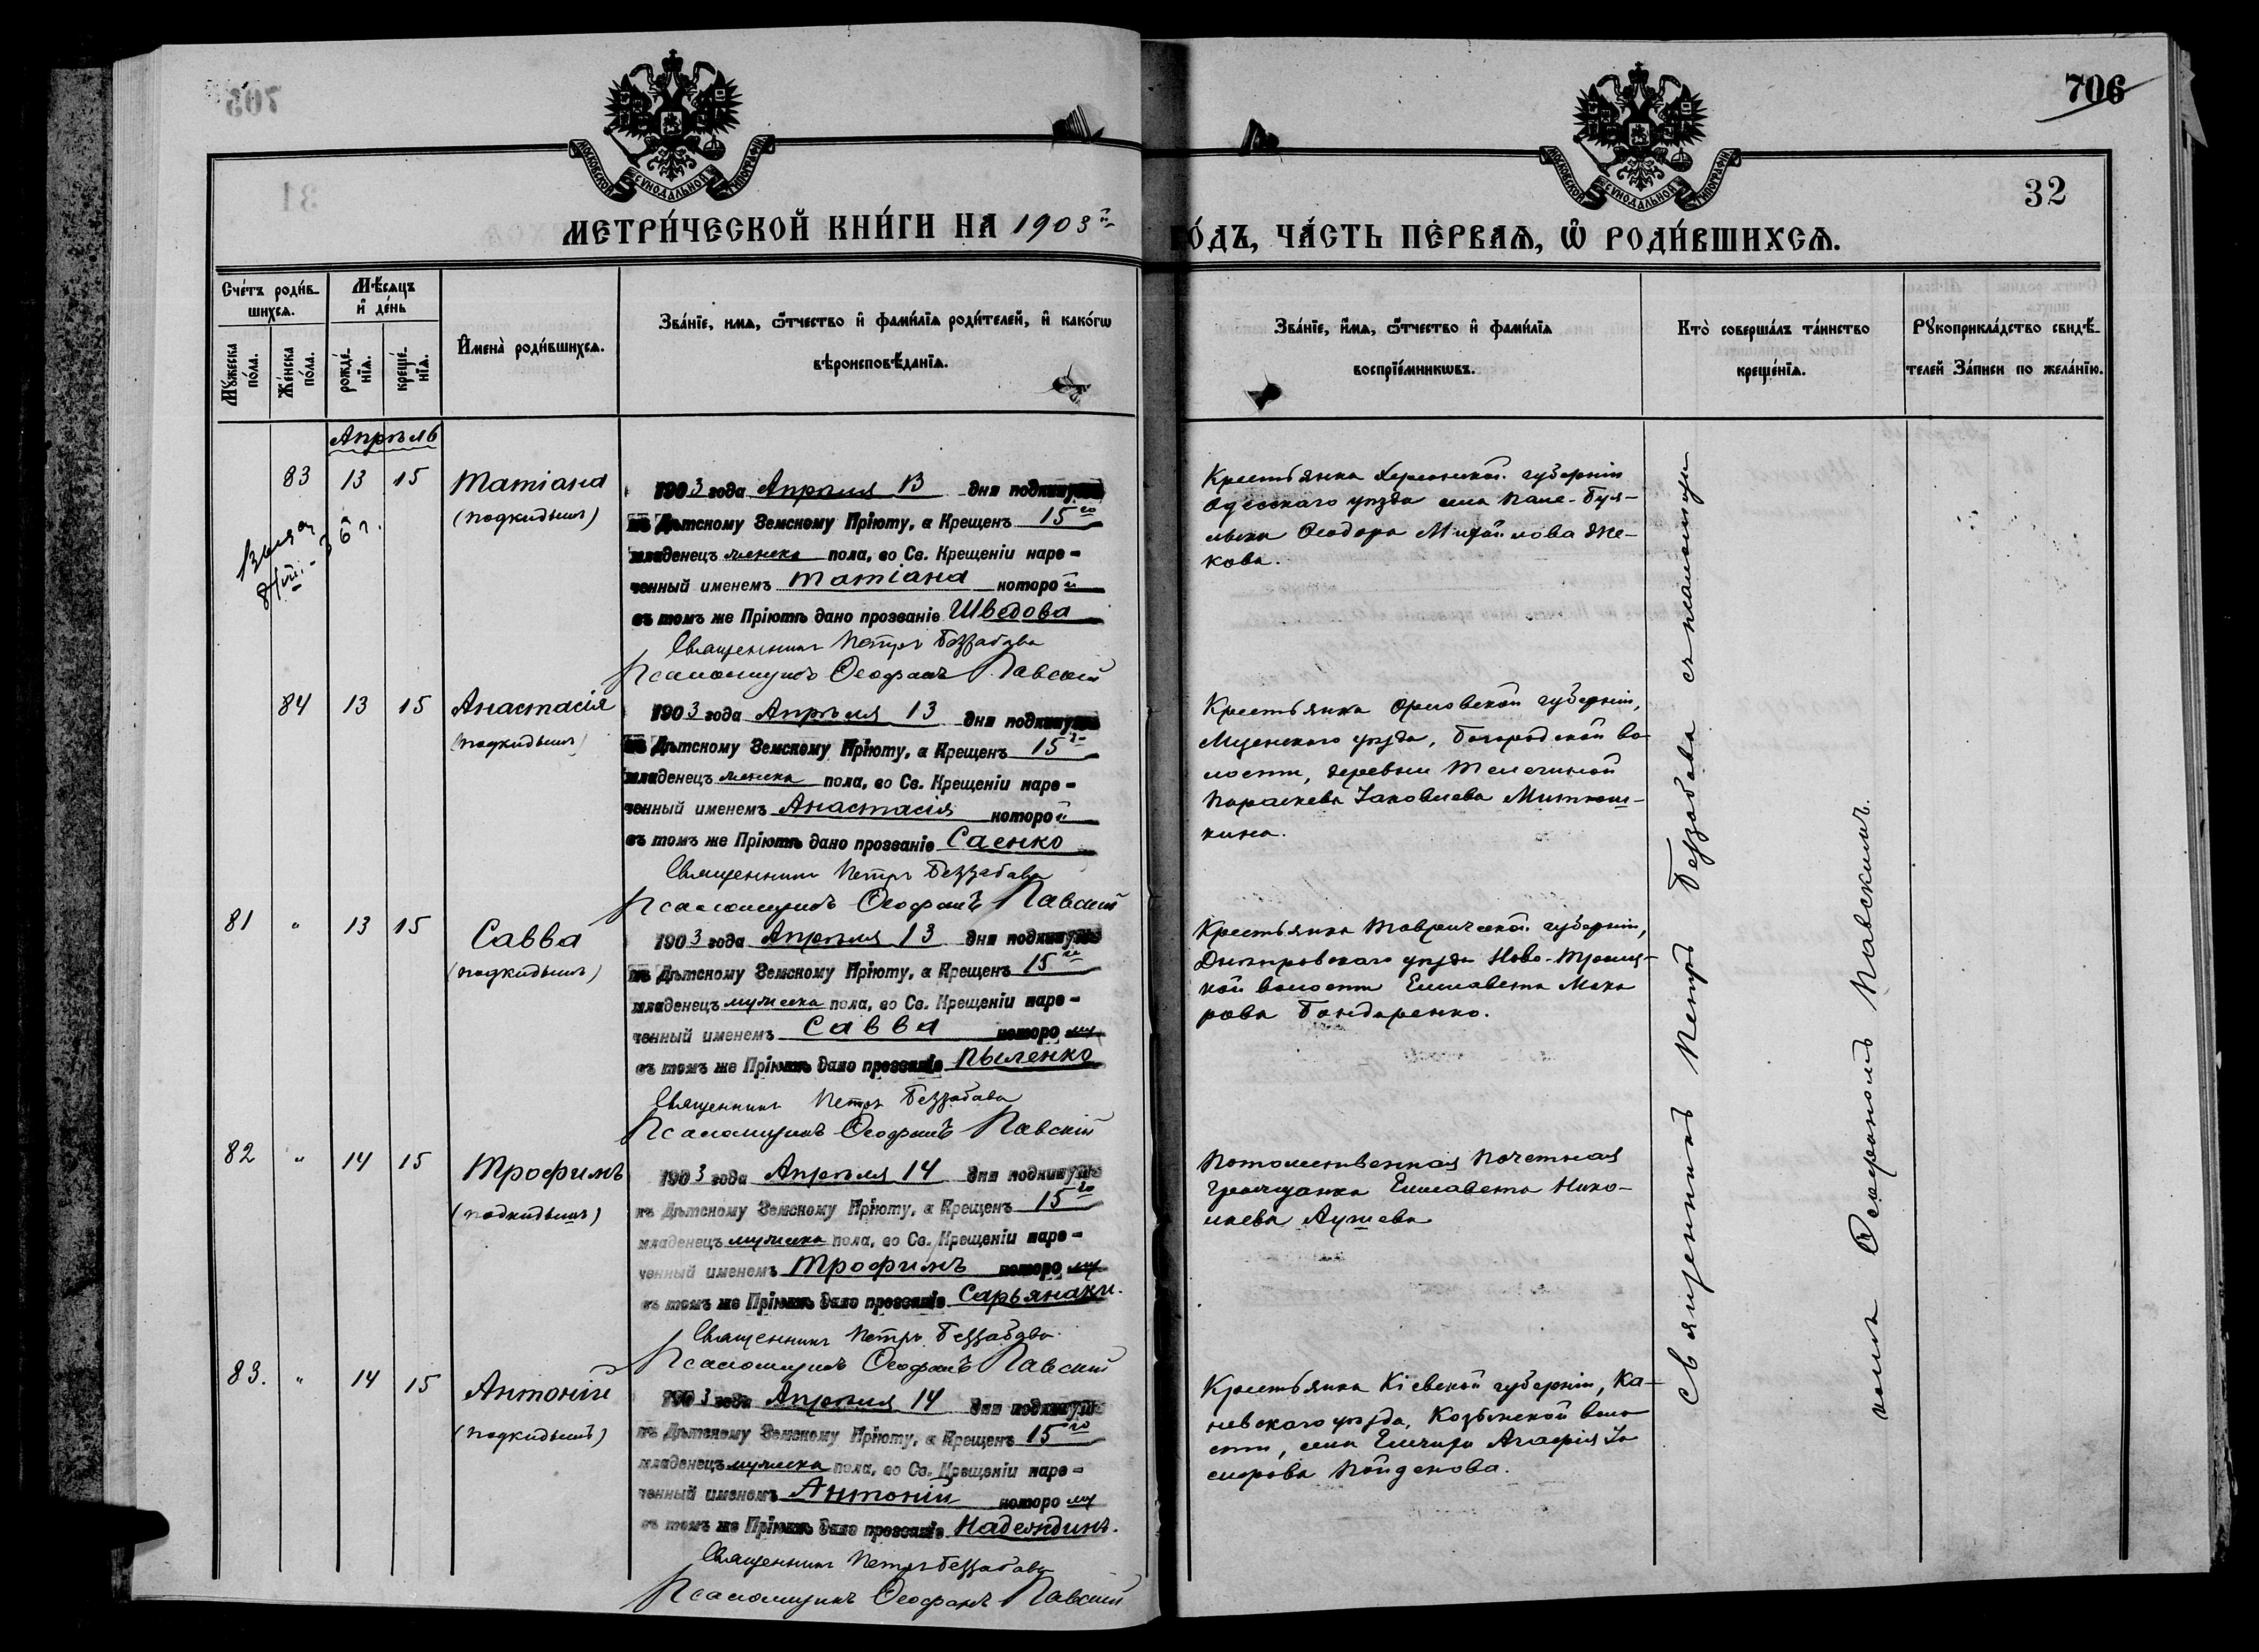 706
32
МОСКОВСКОЙ СѴНОДАЛЬНОЙ ТИПОГРАФІИ
МОСКОВСКОЙ СѴНОДАЛЬНОЙ ТИПОГРАФІИ
МЕТРИ́ЧЕСКОЙ КНИ́ГИ НА 1903й
ГО́ДЪ, ЧА́СТЬ ПЕ́РВАѦ, Ѡ҆ РОДИ́ВШИХСѦ.
Сче́тъ роди́в-
шихсѧ.
Мꙋ́жеска по́ла.
Же́нска по́ла.
Мѣ́сѧцъ
и҆ де́нь
рожде́-
нїѧ.
креще́-
нїѧ.
И҆мена̀ роди́вшихсѧ.
Зва́нїе, имѧ, ѻ҆́тчество и҆ фами́лїѧ роди́телей, и҆ како́гѡ
вѣроисповѣ́данїѧ.
Зва́нїе, и҆́мѧ, ѻ҆́тчество и҆ фами́лїѧ
воспрїе́мникѡвъ.
Кто̀ соверша́лъ та́инство
креще́нїѧ.
Рꙋкоприкла́дство свидѣ́-
телей За́писи по жела́нїю.
Апрѣль
83 13 15 Татіана
(подкидышъ)
1903 года Апрѣля 13 дня подкинут
къ Дѣтскому Земскому Пріюту, а Крещенъ 15го
младенецъ женска пола, во Св. Крещеніи наре-
ченный именемъ Татіана которой
въ томъ же Пріютѣ дано прозваніе Шведова
Священникъ Петръ Беззабава
Псаломщикъ Ѳеофанъ Павскій
Крестьянка Херсонской губерніи
Одесскаго уѣзда
кова.
84 13 15 Анастасія
(подкидышъ)
1903 года Апрѣля 13 дня подкинут
къ Дѣтскому Земскому Пріюту, а Крещенъ 15го
младенецъ женска пола, во Св. Крещеніи наре-
ченный именемъ Анастасія которой
въ томъ же Пріютѣ дано прозваніе Саенко
Священникъ Петръ Беззабава
Псаломщикъ Ѳеофанъ Павскій
Крестьянка Орловской губерніи,
Мценскаго уѣзда, Богородской во-
лости, деревни
Параскева Іаковлева Митюш-
кина.
81 " 13 15 Савва
(подкидышъ)
1903 года Апрѣля 13 дня подкинут
къ Дѣтскому Земскому Пріюту, а Крещенъ 15го
младенецъ мужеска пола, во Св. Крещеніи наре-
ченный именемъ Савва которому
въ томъ же Пріютѣ дано прозваніе Пыленко
Священникъ Петръ Беззабава
Псаломщикъ Ѳеофанъ Павскій
Крестьянка Таврической губерніи,
Днѣпровскаго уѣзда Ново-Троиц-
кой волости Елисавета Мака
рова Бондаренко.
82 " 14 15 Трофимъ
(подкидышъ)
1903 года Апрѣля 14 дня подкинут
къ Дѣтскому Земскому Пріюту, а Крещенъ 15го
младенецъ мужеска пола, во Св. Крещеніи наре-
ченный именемъ Трофимъ которому
въ томъ же Пріютѣ дано прозваніе Сарьянаки.
Священникъ Петръ Беззабава.
Псаломщикъ Ѳеофанъ Павскій
Потомственная почетная
гражданка Елисавета Нико-
лаева
83. " 14 15 Антоній
(подкидышъ)
1903 года Апрѣля 14 дня подкинут
къ Дѣтскому Земскому Пріюту, а Крещенъ 15го
младенецъ мужеска пола, во Св. Крещеніи наре-
ченный именемъ Антоній которому
въ томъ же Пріютѣ дано прозваніе Надеждинъ.
Священникъ Петръ Беззабава
Псаломщикъ Ѳеофанъ Павскій
Крестьянка Кіевской губерніи, Ка-
невскаго уѣзда, Козинской воло
сти, села Агафія
Священникъ Петръ Беззабава съ псаломщи
комъ Ѳеофаномъ Павскимъ.